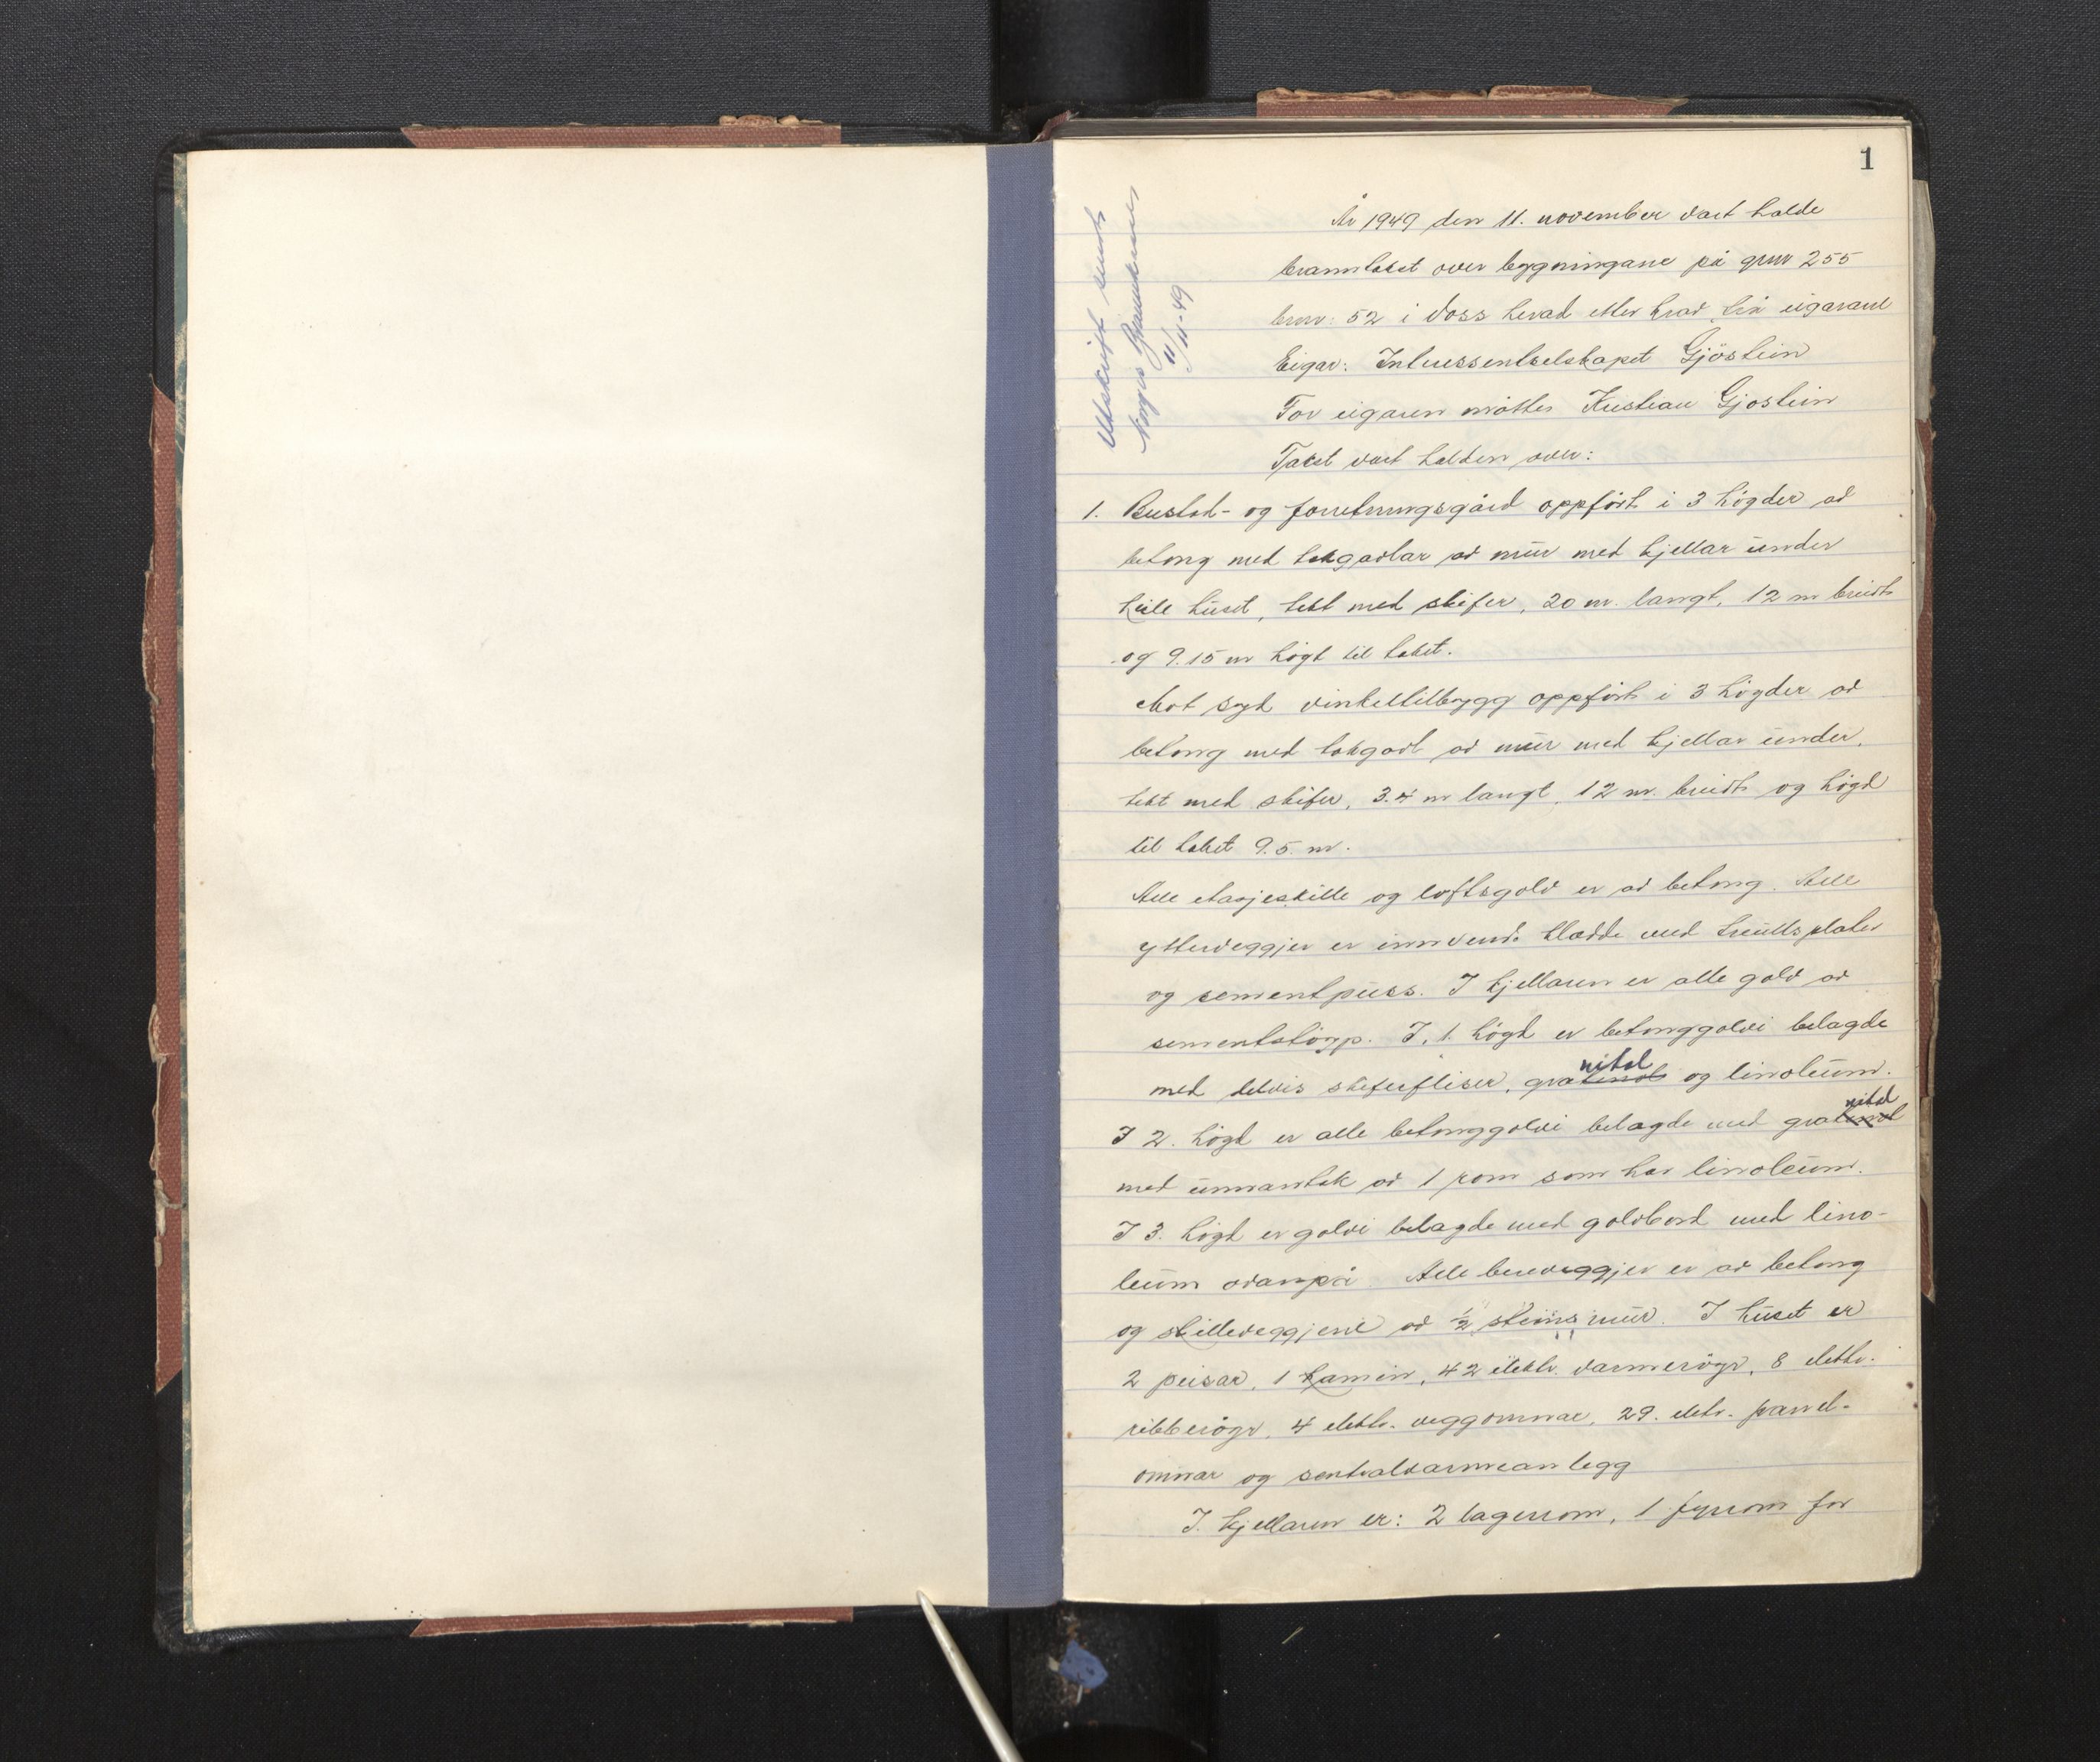 1
Utskrift sendt
Norges Brannkasse
11/11-49
År 1949 den 11. november vart halde
branntakst over bygningane på gnr 255
bnr: 52 i Voss herad etter krav frå eigarane
Eigar: Interessentselskapet Gjöstein
For eigaren møtte Kristian Gjostein
Takst vart halden over:
1. Bustad- og forretningsgård oppfört i 3 högder av
betong med takgavlar av mur med kjellar under
heile huset, tekt med skifer, 20 m. langt, 12 m breidt
og 9.15 m högt til taket.
Mot syd vinkeltilbygg oppfört i 3 högder av
betong med takgavl av mur med kjellar under,
tekt med skifer, 3.4 m langt, 12 m. breidt og högd
til taket 9.5. m.
Alle etasjeskille og loftsgolv er av betong. Alle
ytterveggjer er innvend. kledde med treullsplater
og sementpuss. I kjellaren er alle golv av
sementstöyp. I. 1. högd er betonggolvi belagde
nitol
med delvis skiferfliser, gratinol og linoleum.
nitol
I 2. högd er alle betonggolvi belagde med gratinol
med unnantak av 1 rom som har linoleum.
I 3. högd er golvi belagde med golvbord med lino-
leum ovanpå Alle bereveggjer er av betong
og skilleveggjene av ½ steins mur. I huset er
2 peisar, 1 kamin, 42 elektr. varmeröyr, 8 elektr.
ribberöyr, 4 elektr. veggomnar, 29. elektr. panel-
omnar og sentralvarmeanlegg
I. kjellaren er: 2 lagerrom, 1 fyrrom for